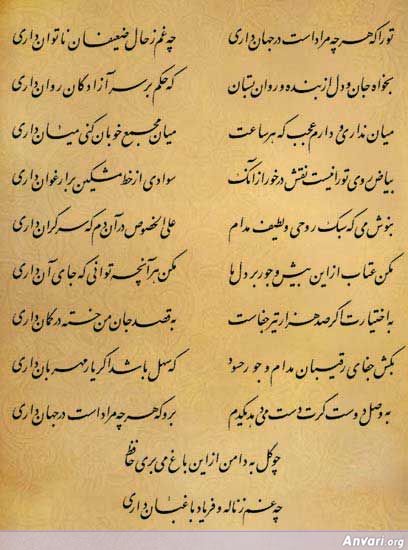 تو را که هر چه مراد است در جهان داری چه غم ز حال ضعیفان ناتوان داری
بخواه جان و دل از بنده و روان بستان که حکم بر سر آزادگان روان داری
میان نداری و دارم عجب که هر ساعت میان مجمع خوبان کنی میان داری
بیاض روی تو را نیست نقش درخور از آنک سوادی از خط مشکین بر ارغوان داری
بنوش می که سبک روحی و لطیف مدام علی الخصوص در آن دم که سر گران داری
مکن عتاب از این بیش و جور بر دل ما مکن هر آنچه توانی که جای آن داری
به اختیارت اگر صد هزار تیر جفاست به قصد جان من خسته در کمان داری
بکش جفای رقیبان مدام و جور حسود که سهل باشد اگر یار مهربان داری
به وصل دوست گرت دست می‌دهد یک دم برو که هر چه مراد است در جهان داری
چو گل به دامن از این باغ می‌بری حافظ
چه غم ز ناله و فریاد باغبان داری
Anvari.org